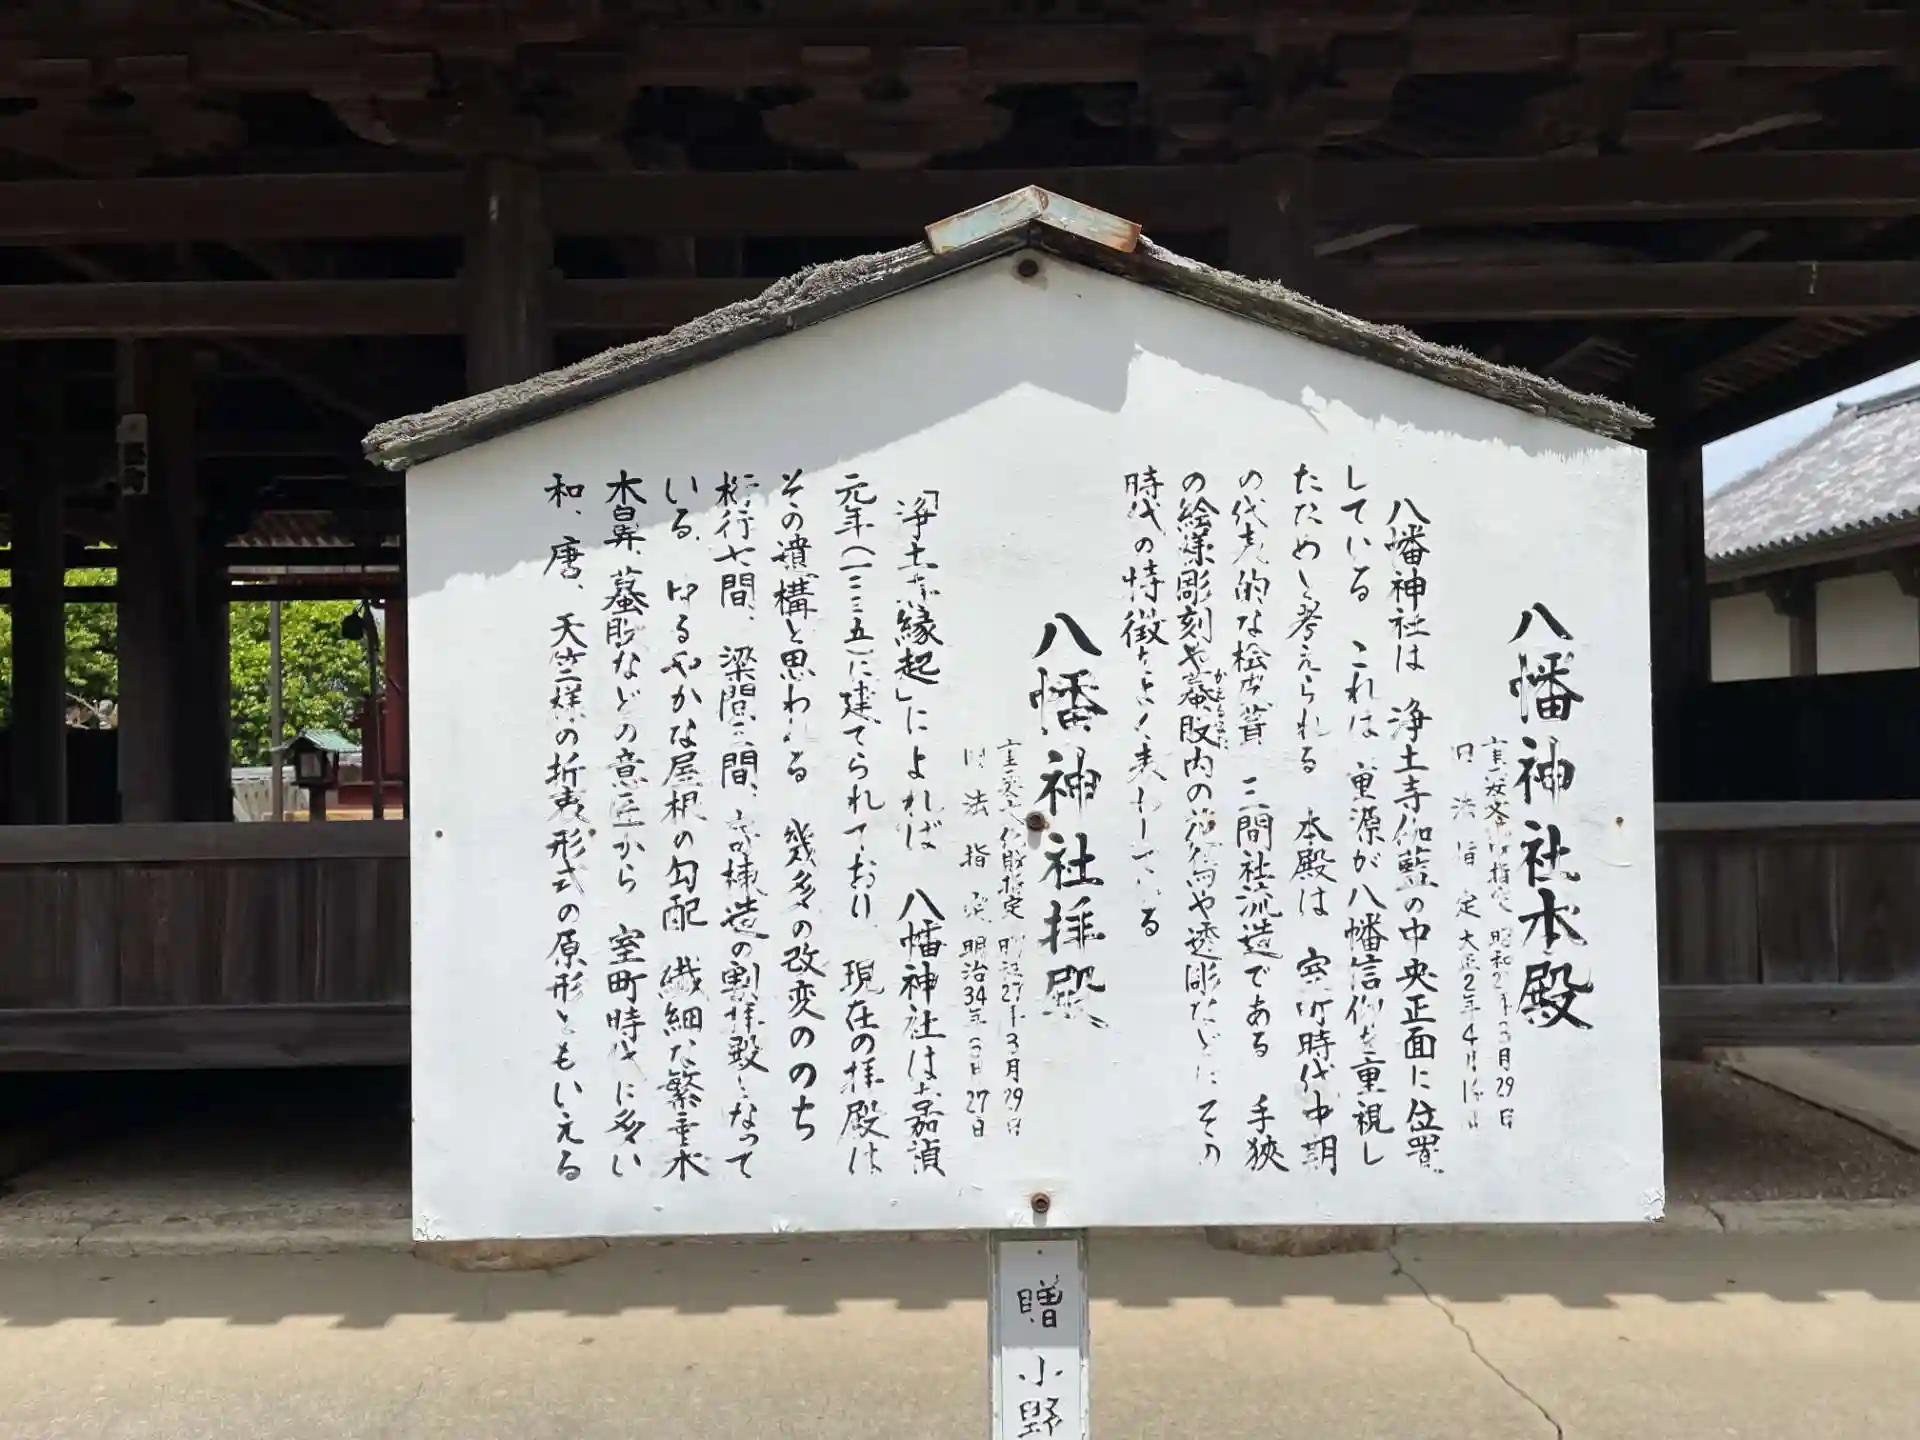 八幡神社本殿
重要文化財指定 昭和27年3月29日
旧法指定 大正2年4月14日
八幡神社は 浄土寺伽藍の中央正面に位置
している これは 重源が八幡信仰を重視し
たためと考えられる 本殿は 室町時代中期
の代表的な桧皮葺 三間社流造である 手狭
の絵様彫刻や蟇股内の や透彫などに その
時代の特徴をよく表わしている
八幡神社拝殿
重要文化財指定 昭和27年3月29日
旧法指定 明治34年3月27日
「浄土寺縁起」によれば 八幡神社は嘉禎
元年(一二三五)に建てられており、現在の拝殿は
その遺構と思われる 幾多の改変ののち
桁行七間、梁間三間、寄棟造の割拝殿となって
いる。ゆるやかな屋根の勾配 繊細な繁垂木
木鼻、蟇股などの意匠から 室町時代に多い
和、唐、天竺様の折衷形式の原形ともいえる
贈 小野